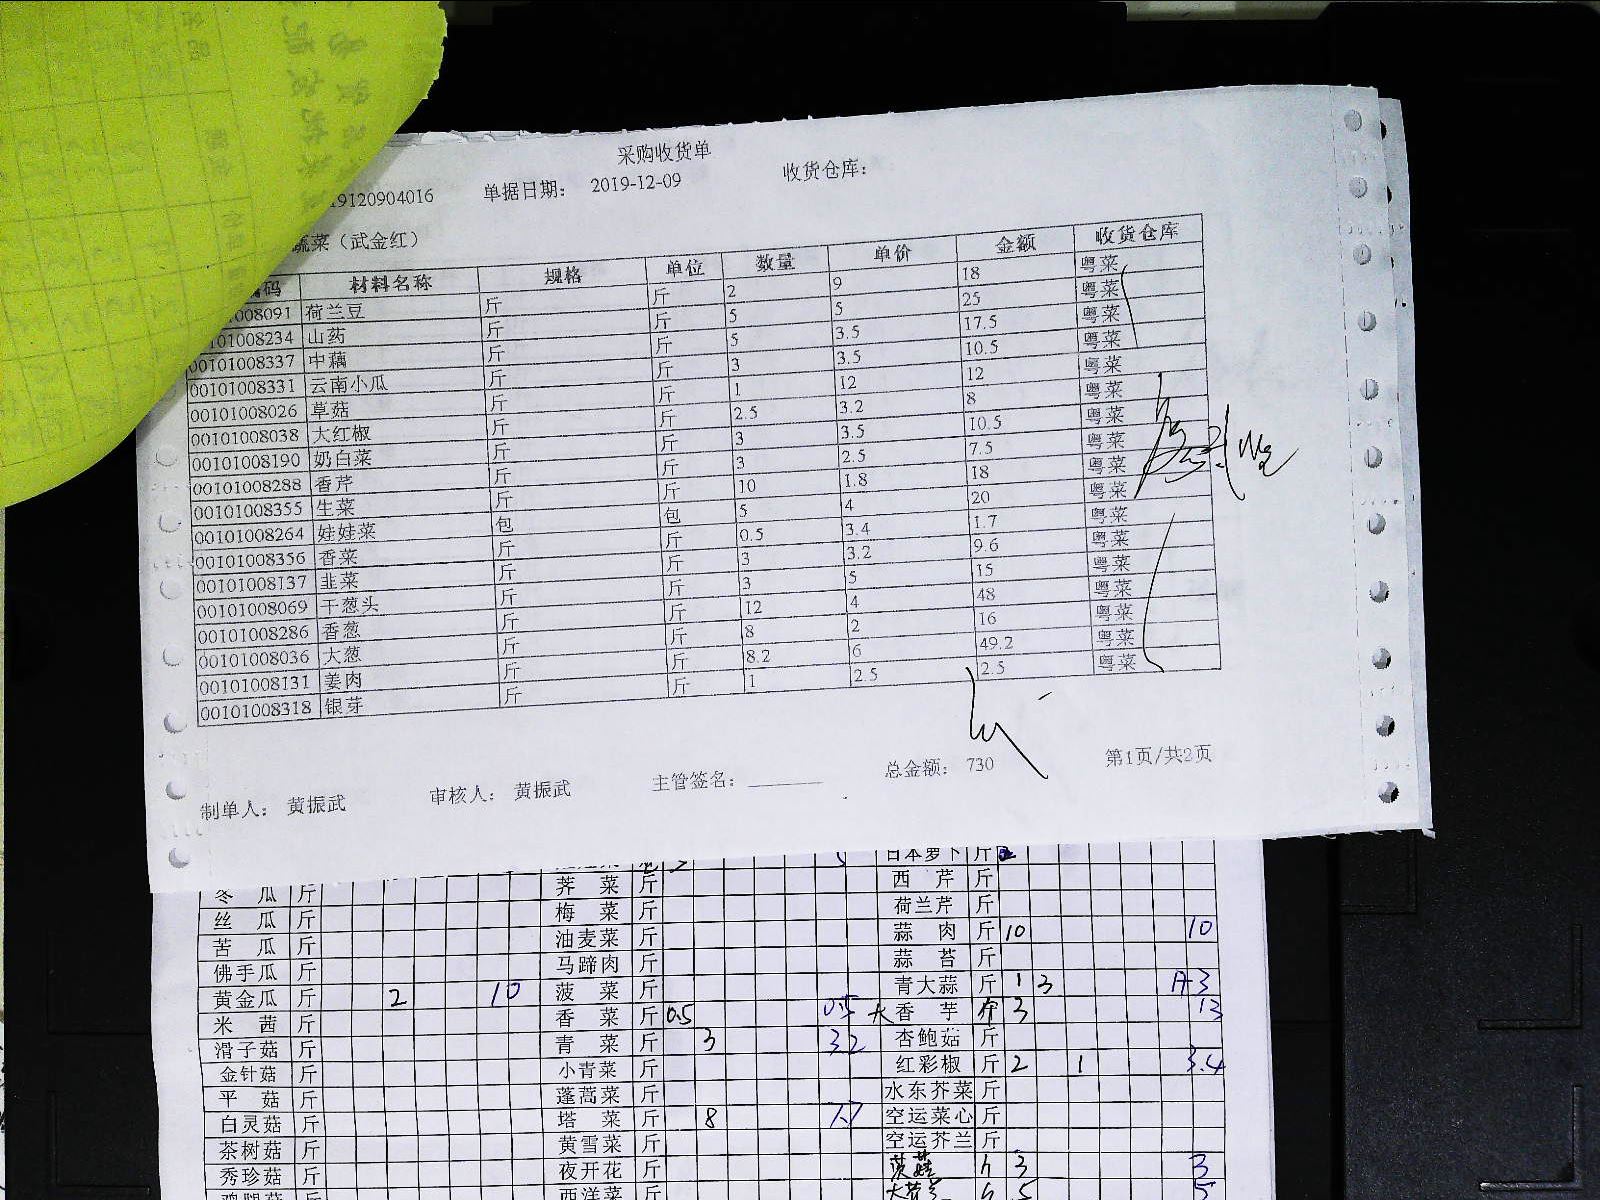 采购收货单
19120904016 单据日期: 2019-12-09 收货仓库:
蔬菜（武金红）
编码 材料名称 规格 单位 数量 单价 金额 收货仓库
008091 荷兰豆 斤 斤 2 9 18 粤菜
0101008234 山药 斤 斤 5 5 25 粤菜
00101008337 中藕 斤 斤 5 3.5 17.5 粤菜
00101008331 云南小瓜 斤 斤 3 3.5 10.5 粤菜
00101008026 草菇 斤 斤 1 12 12 粤菜
00101008038 大红椒 斤 斤 2.5 3.2 8 粤菜
00101008190 奶白菜 斤 斤 3 3.5 10.5 粤菜
00101008288 香芹 斤 斤 3 2.5 7.5 粤菜
00101008355 生菜 斤 斤 10 1.8 18 粤菜
00101008264 娃娃菜 包 包 5 4 20 粤菜
00101008356 香菜 斤 斤 0.5 3.4 1.7 粤菜
00101008137 韭菜 斤 斤 3 3.2 9.6 粤菜
00101008069 干葱头 斤 斤 3 5 15 粤菜
00101008286 香葱 斤 斤 12 4 48 粤菜
00101008036 大葱 斤 斤 8 2 16 粤菜
00101008131 姜肉 斤 斤 8.2 6 49.2 粤菜
00101008318 银芽 斤 斤 1 2.5 2.5 粤菜
制单人: 黄振武 审核人: 黄振武 主管签名: 总金额: 730 第1页/共2页
日本萝卜 斤
冬瓜 斤 荠菜 斤 西芹 斤
丝瓜 斤 梅菜 斤 荷兰芹 斤
苦瓜 斤 油麦菜 斤 蒜肉 斤 10 10
佛手瓜 斤 马蹄肉 斤 蒜苔 斤
黄金瓜 斤 2 10 菠菜 斤 青大蒜 斤 1 3
米茜 斤 香菜 斤 0.5 0.5 大香芋 3 13
滑子菇 斤 青菜 斤 3 3.2 杏鲍菇 斤
金针菇 斤 小青菜 斤 红彩椒 斤 2 1 3.4
平菇 斤 蓬蒿菜 斤 水东芥菜 斤
白灵菇 斤 塔菜 斤 8 空运菜心 斤
茶树菇 斤 黄雪菜 斤 空运芥兰 斤
秀珍菇 斤 夜开花 斤 3 3
鸡腿菇 斤 西洋菜 斤 5 5